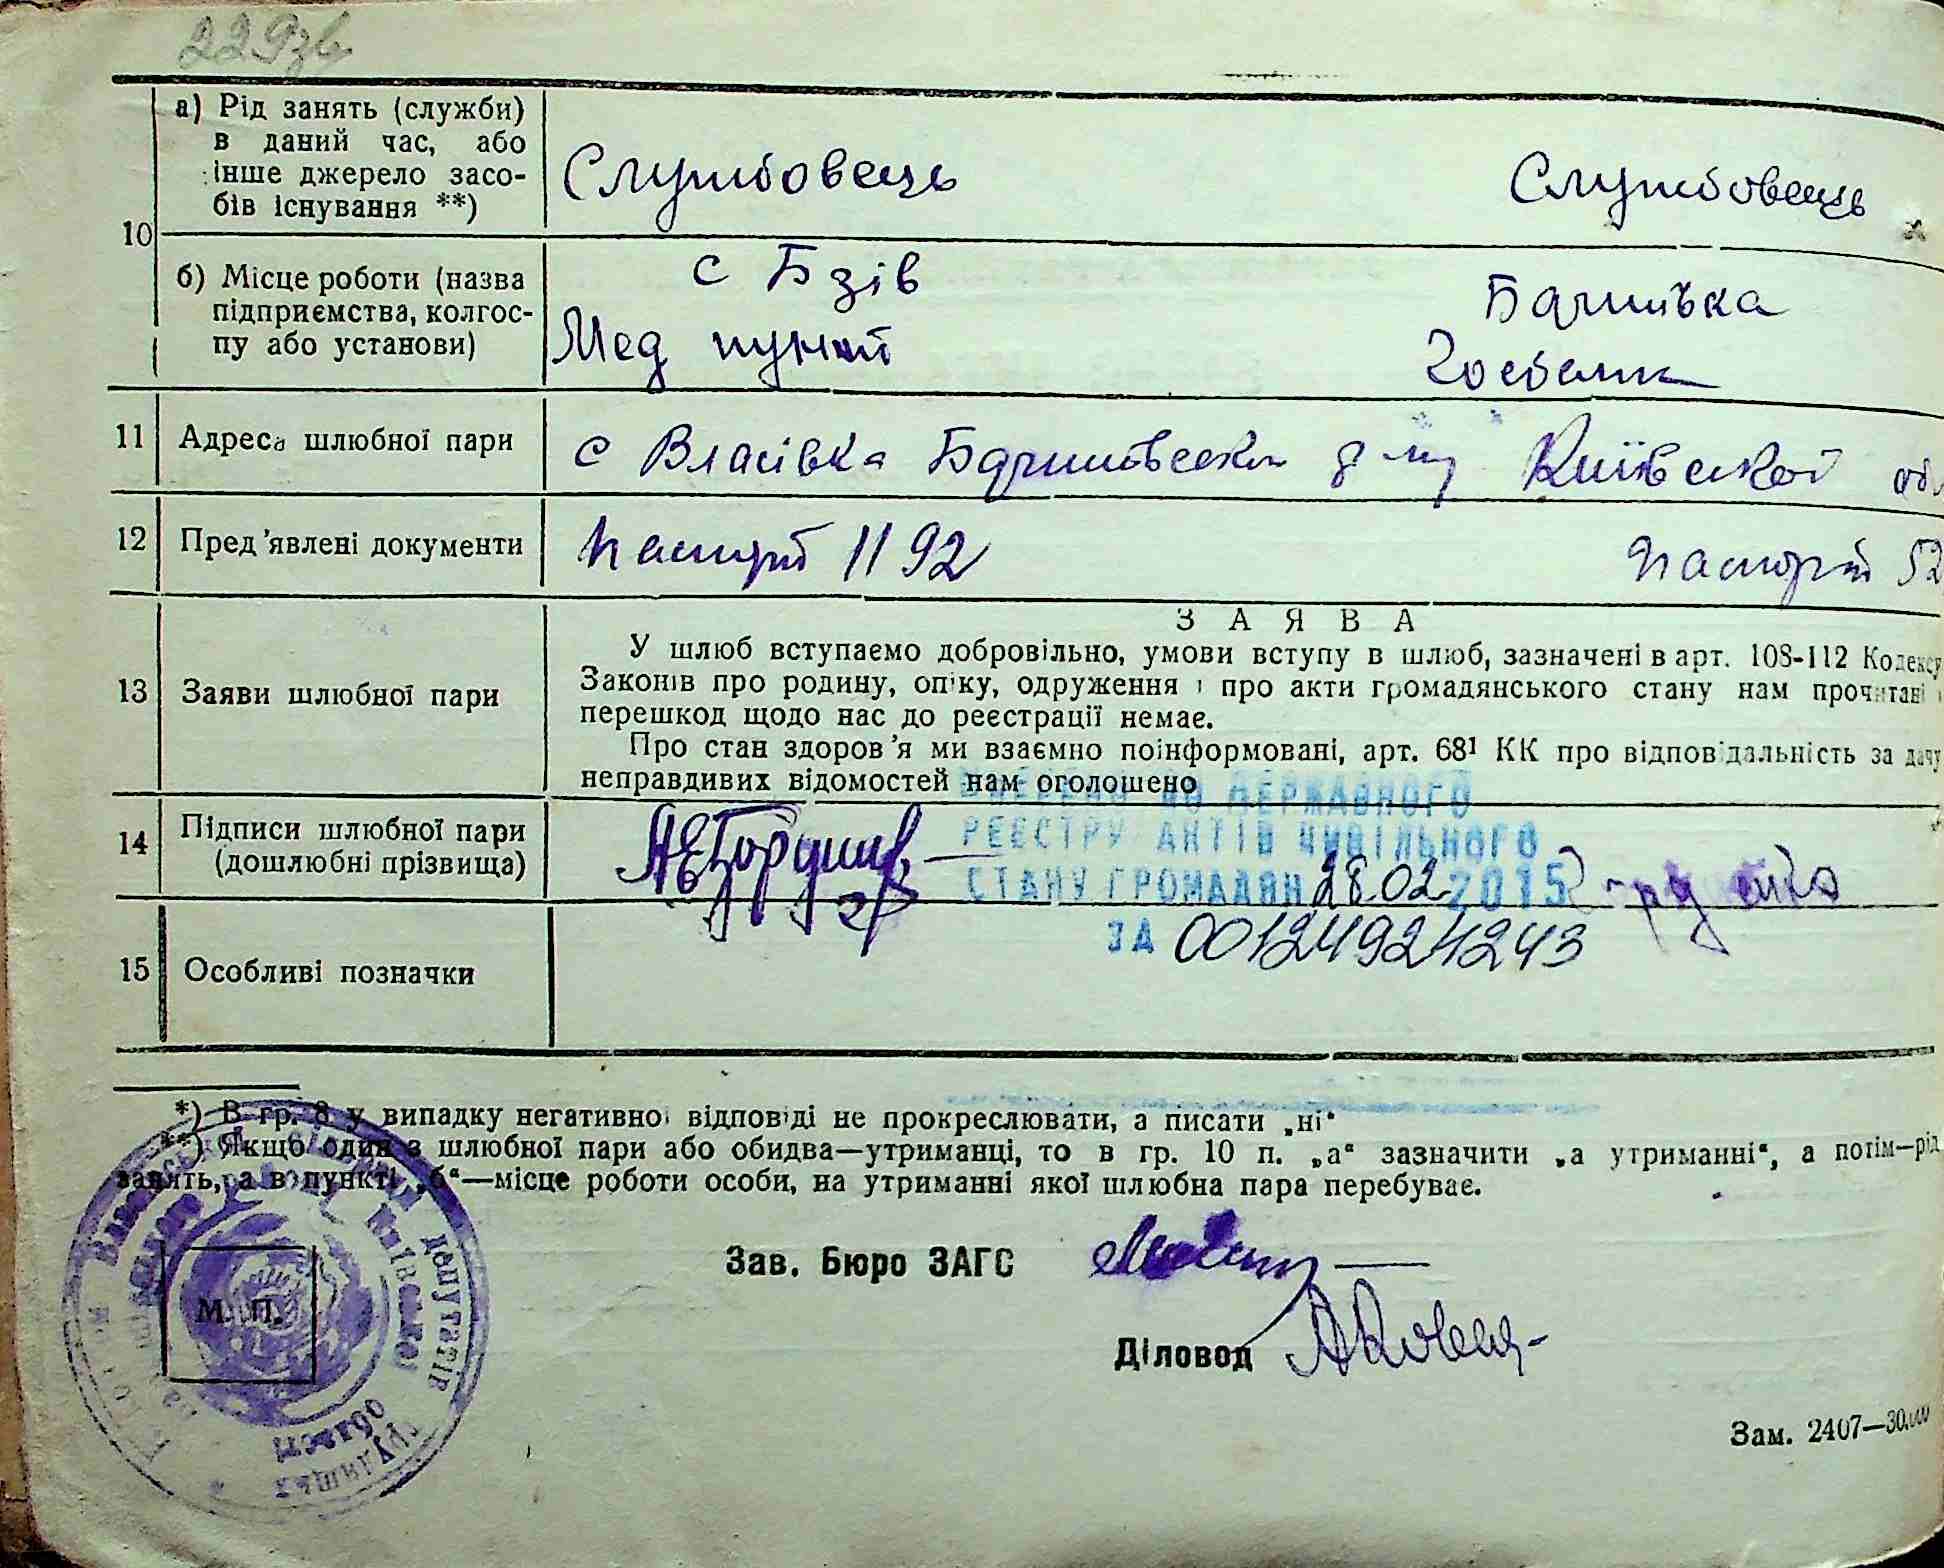 а) Рід занять (служби)
в даний час, або
інше джерело засо-
бів існування **)
Службовець
Службовець
10
б) Місце роботи (назва
підприємства, колгос-
пу або установи)
с Бзів
Мед пункт
11
Адреса шлюбної пари
с Власівка
12
Пред'явлені документи
паспорт 1192
паспорт 52
З А Я В А
13
Заяви шлюбної пари
У шлюб вступаємо добровільно, умови вступу в шлюб, зазначені в арт. 108-112 Кодексу
Законів про родину, опіку, одруження і про акти громадянського стану нам прочитані і
перешкод щодо нас до реєстрації немає.
Про стан здоров'я ми взаємно поінформовані, арт. 68¹ КК про відповідальність за дачу
неправдивих відомостей нам оголошено
14
Підписи шлюбної пари
(дошлюбні прізвища)
ВНЕСЕНО ДО ДЕРЖАВНОГО
РЕЄСТРУ АКТІВ ЦИВІЛЬНОГО
СТАНУ ГРОМАДЯН 28.02.2015
ЗА 00124924243
15
Особливі позначки
*) В гр. 8 у випадку негативної відповіді не прокреслювати, а писати „ні“
**) Якщо один з шлюбної пари або обидва—утриманці, то в гр. 10 п. „а“ зазначити „а утриманні“, а потім—рід
занять, а в пункті „б“—місце роботи особи, на утриманні якої шлюбна пара перебуває.
Зав. Бюро ЗАГС
М. П.
депутатів
Київської
області
трудящих
Діловод
Зам. 2407—30.000